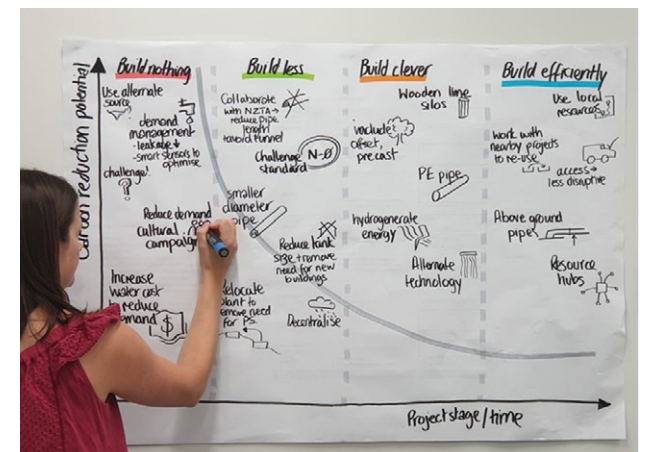 Build nothing
Build less
Build clever
Build efficiently
Carbon reduction potential
Use alternate
source
demand
management
- leakage ↓
- smart sensors to
optimise
challenge!
Reduce demand
cultural
campaign
Increase
water cost
to reduce
demand
$
Collaborate
with NZTA →
reduce pipe
length
to avoid tunnel
Challenge
standard
N-0
smaller
diameter
pipe
Reduce tank
size → remove
need for new
buildings
Relocate
plant to
remove need
for PS
Decentralise
Wooden lime
silos
include
offset,
precast
PE pipe
hydrogenerate
energy
Alternate
technology
Use local
resources
Work with
nearby projects
to re-use
access →
less disruptive
Above ground
pipe
Resource
hubs
Project stage/time